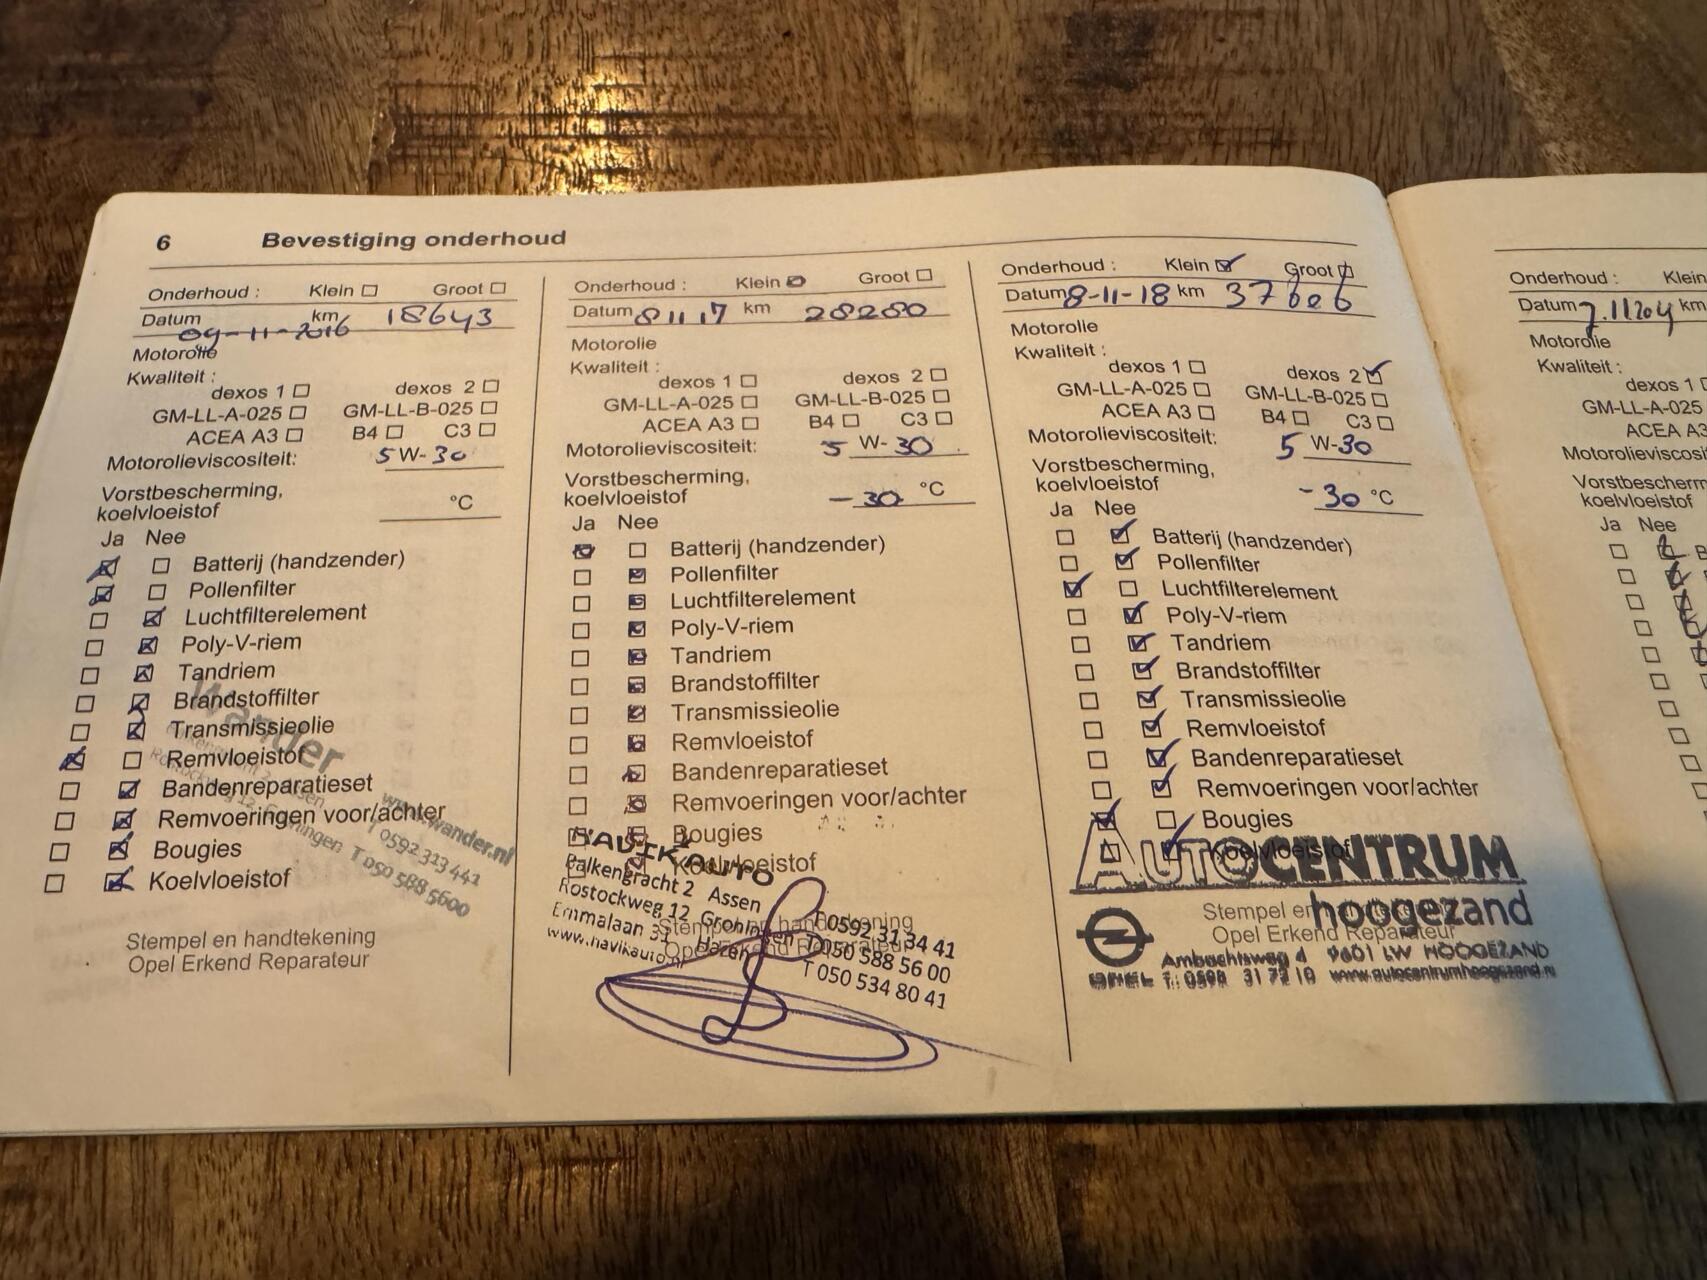 6 Bevestiging onderhoud
Onderhoud : Klein Groot
Datum 09-11-2016 km 18643
Motorolie
Kwaliteit :
dexos 1 dexos 2
GM-LL-A-025 GM-LL-B-025
ACEA A3 B4 C3
Motorolieviscositeit: 5 W-30
Vorstbescherming,
koelvloeistof °C
Ja Nee
Batterij (handzender)
Pollenfilter
Luchtfilterelement
Poly-V-riem
Tandriem
Brandstoffilter
Transmissieolie
Remvloeistof
Bandenreparatieset
Remvoeringen voor/achter
Bougies
Koelvloeistof
Wander
www.wander.nl
T 0592 313 441
T 050 588 5600
Stempel en handtekening
Opel Erkend Reparateur
Onderhoud : Klein Groot
Datum 8 11 17 km 28280
Motorolie
Kwaliteit :
dexos 1 dexos 2
GM-LL-A-025 GM-LL-B-025
ACEA A3 B4 C3
Motorolieviscositeit: 5 W-30
Vorstbescherming,
koelvloeistof -30 °C
Ja Nee
Batterij (handzender)
Pollenfilter
Luchtfilterelement
Poly-V-riem
Tandriem
Brandstoffilter
Transmissieolie
Remvloeistof
Bandenreparatieset
Remvoeringen voor/achter
Bougies
Koelvloeistof
HAVIK AUTO
Balkengracht 2 Assen T 0592 31 34 41
Rostockweg 12 Groningen T 050 588 56 00
Emmalaan 31 Haren T 050 534 80 41
www.havikauto.nl
Stempel en handtekening
Opel Erkend Reparateur
Onderhoud : Klein Groot
Datum 8-11-18 km 37606
Motorolie
Kwaliteit :
dexos 1 dexos 2
GM-LL-A-025 GM-LL-B-025
ACEA A3 B4 C3
Motorolieviscositeit: 5 W-30
Vorstbescherming,
koelvloeistof -30 °C
Ja Nee
Batterij (handzender)
Pollenfilter
Luchtfilterelement
Poly-V-riem
Tandriem
Brandstoffilter
Transmissieolie
Remvloeistof
Bandenreparatieset
Remvoeringen voor/achter
Bougies
Koelvloeistof
AUTOCENTRUM
hoogezand
Stempel en handtekening
Opel Erkend Reparateur
Ambachtsweg 4 9601 LW HOOGEZAND
OPEL T: 0598 31 72 10 www.autocentrumhoogezand.nl
Onderhoud : Klein
Datum km
Motorolie
Kwaliteit :
dexos 1
GM-LL-A-025
ACEA A3
Motorolieviscosi
Vorstbescherm
koelvloeistof
Ja Nee
B